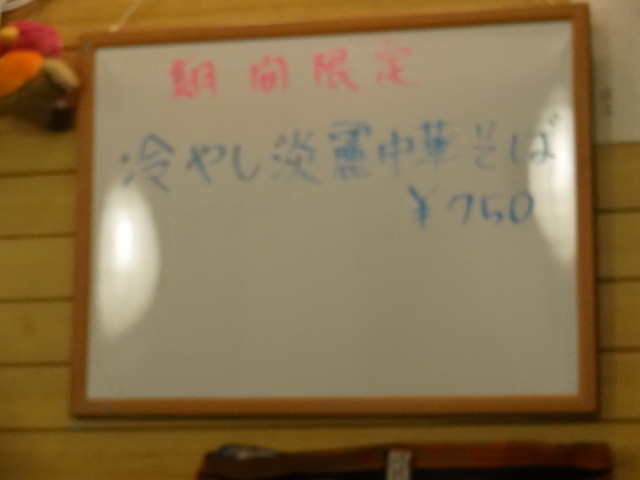 期間限定
冷やし淡麗中華そば
¥750